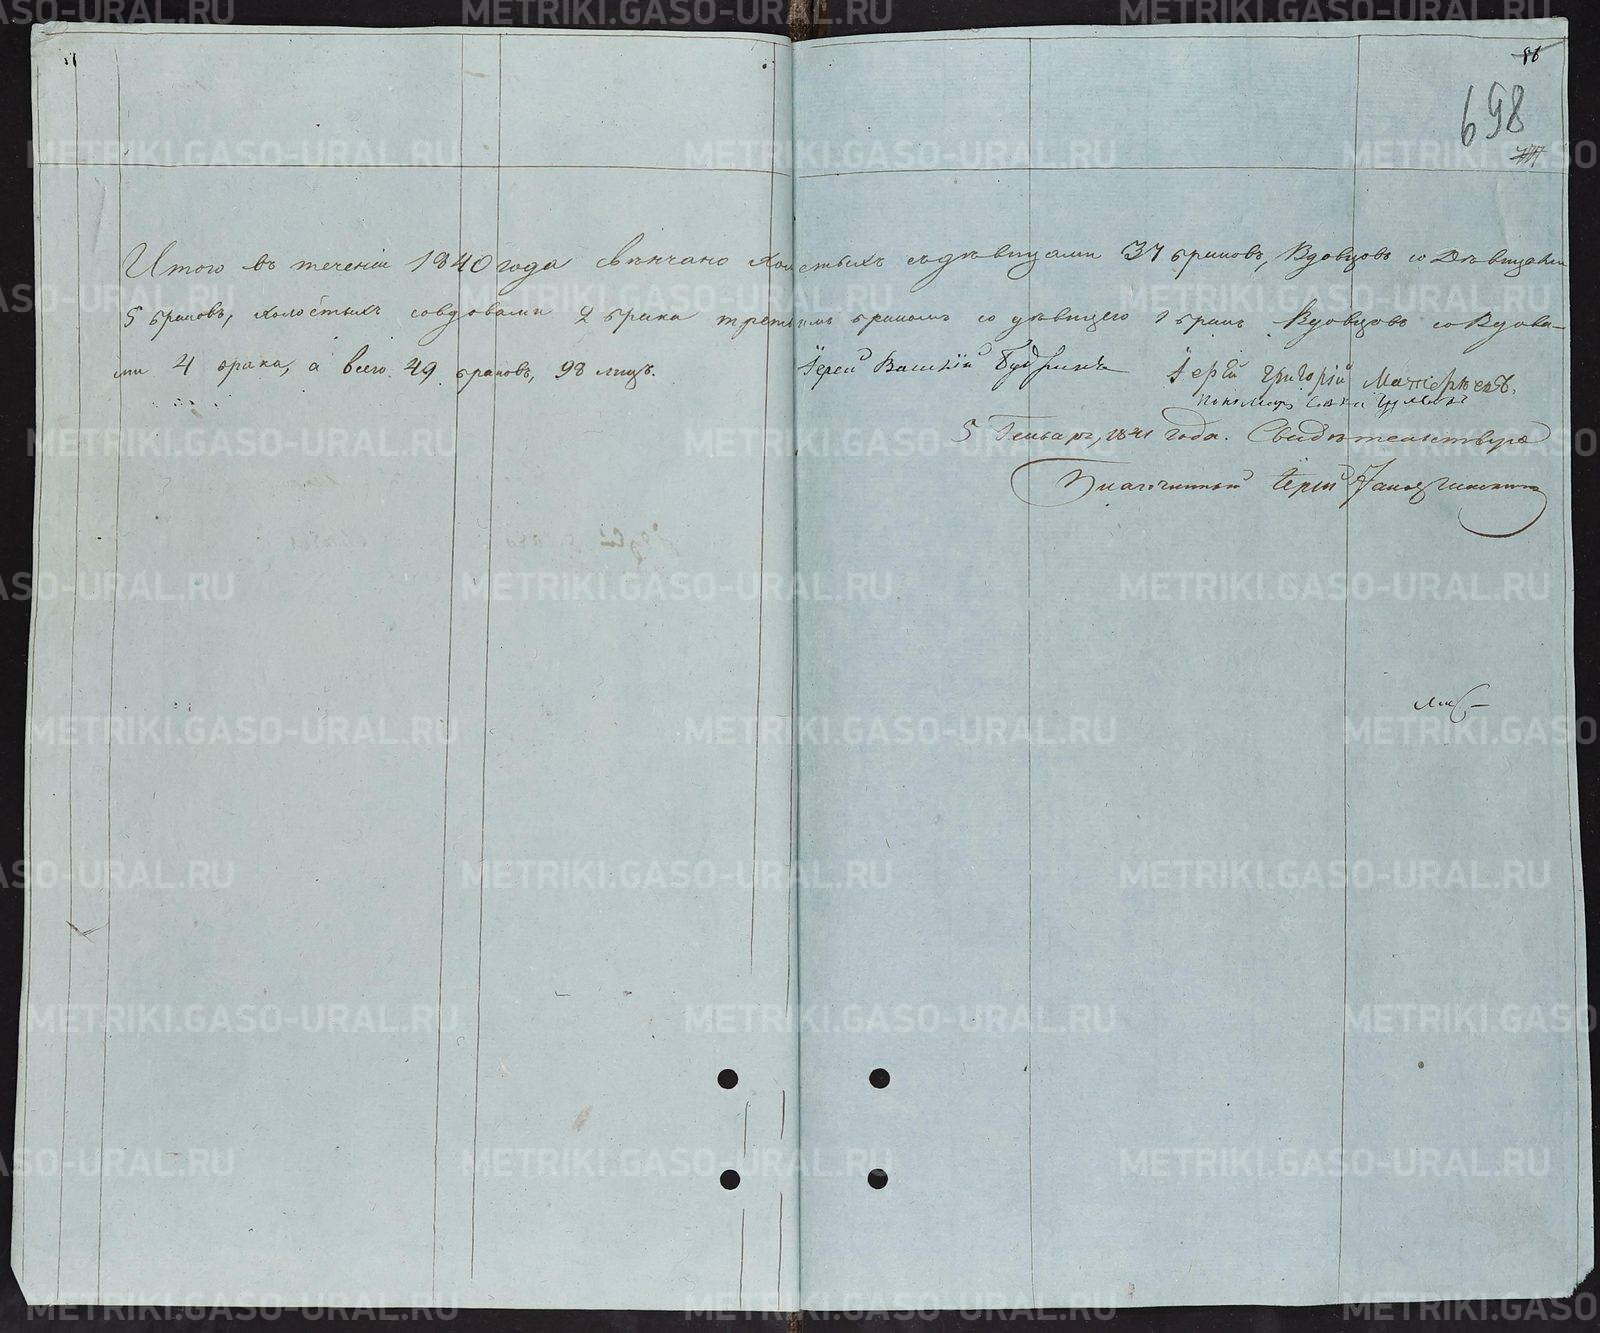 86
698
Итого въ теченіи 1840 года вѣнчано холостыхъ съ дѣвицами 37 браковъ, Вдовцовъ со Дѣвицами
5 браковъ, холостыхъ со вдовами 2 брака третьимъ бракомъ со дѣвицею 1 бракъ Вдовцовъ со Вдова-
ми 4 брака, а всего 49 браковъ, 98 лицъ. Іерей Василій Іерей Григорій
5 Генваря, 1841 года. Свидѣтельствую
Благочинный Іерей
METRIKI.GASO-URAL.RU